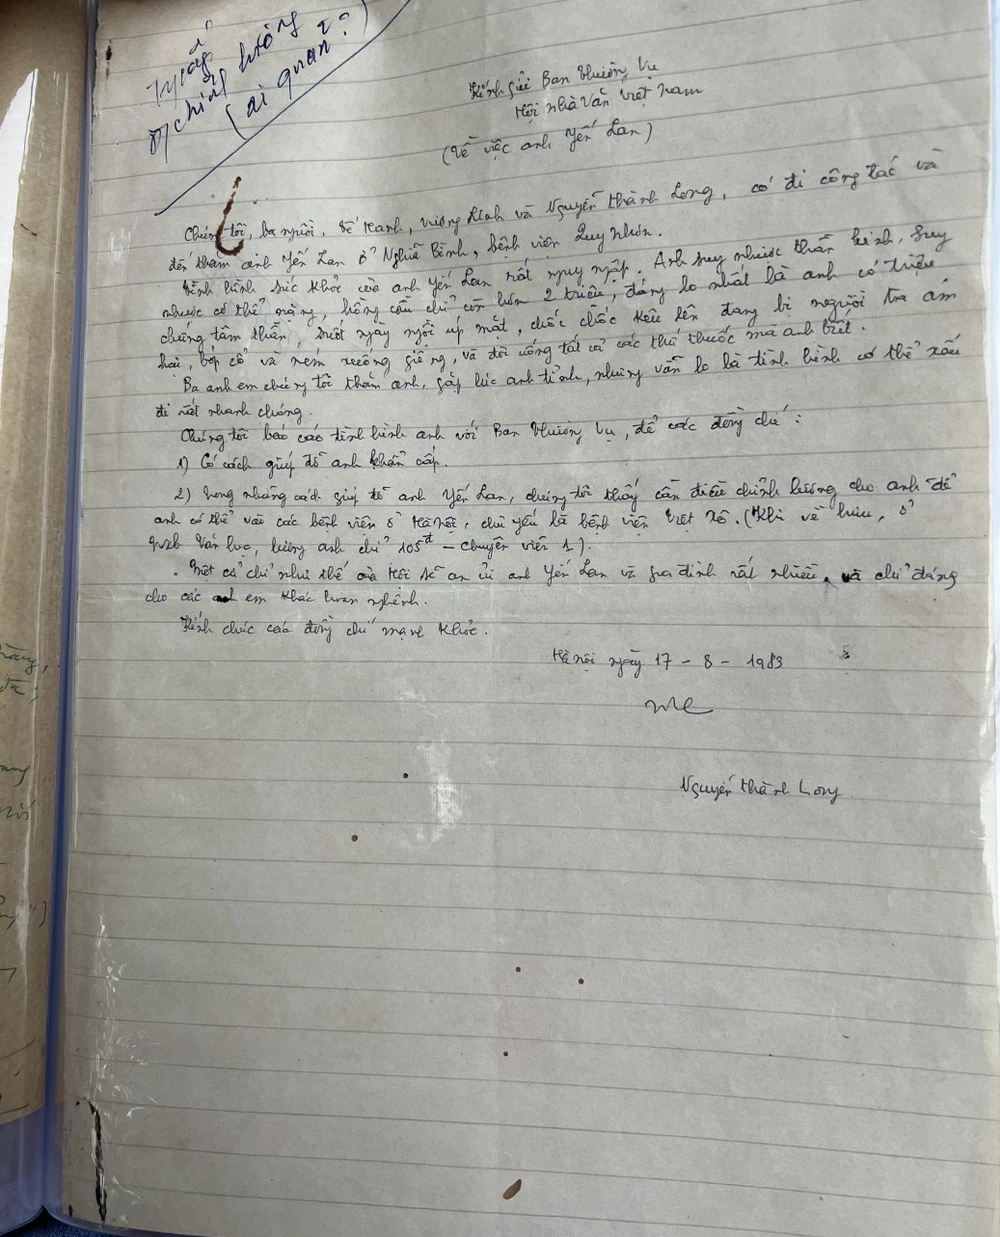 chỉnh lương
(ai quản?)
Kính gửi Ban Thường Vụ
Hội nhà văn Việt Nam
(Về việc anh Yến Lan)
Chúng tôi, ba người, Tế Hanh, Vương Linh và Nguyễn Thành Long, có đi công tác và
đến thăm anh Yến Lan ở Nghĩa Bình, bệnh viện Quy Nhơn.
Tình hình sức khỏe của anh Yến Lan rất nguy ngập. Anh suy nhược thần kinh, suy
nhược cơ thể nặng, hồng cầu chỉ còn hơn 2 triệu, đáng lo nhất là anh có triệu
chứng tâm thần, suốt ngày ngồi úp mặt, chốc chốc kêu lên đang bị người ta ám
hại, bóp cổ và ném xuống giếng, và đòi uống tất cả các thứ thuốc mà anh biết.
Ba anh em chúng tôi thăm anh, gặp lúc anh tỉnh, nhưng vẫn lo là tình hình cơ thể xấu
đi rất nhanh chóng.
Chúng tôi báo cáo tình hình anh với Ban Thường Vụ, để các đồng chí:
1) Có cách giúp đỡ anh khẩn cấp.
2) Trong những cách giúp đỡ anh Yến Lan, chúng tôi thấy cần điều chỉnh lương cho anh để
anh có thể vào các bệnh viện ở Hà Nội, chủ yếu là bệnh viện Việt Xô. (Khi về hưu, ở
nxb Văn học, lương anh chỉ 105đ - chuyên viên 1).
Một cử chỉ như thế của Hội sẽ an ủi anh Yến Lan và gia đình rất nhiều, và chỉ đáng
cho các anh em khác hoan nghênh.
Kính chúc các đồng chí mạnh khỏe.
Hà Nội ngày 17 - 8 - 1983
Nguyễn Thành Long